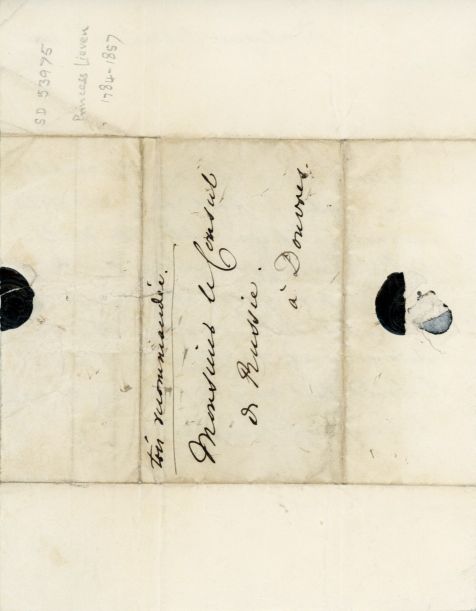 SD 53975
Princess Lieven
1784-1857
très recommandée.
Monsieur le Consul
de Russie.
à Douvres.